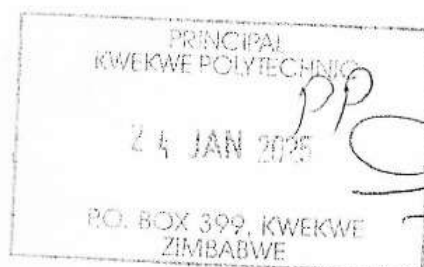 PRINCIPAL
KWEKWE POLYTECHNIC
pp
24 JAN 2025
P.O. BOX 399, KWEKWE
ZIMBABWE